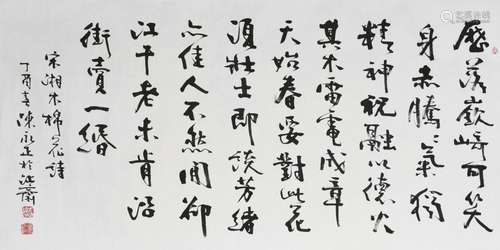 歷落嶔崎可笑
身赤騰〻氣獨
精神祝融以德火
其木雷電成章
天始春要對此花
須壯士即談芳緒
亦佳人不然閒卻
江干老未肯沿
街賣一緡
宋湘木棉花詩
丁酉春陳永正於沚齋